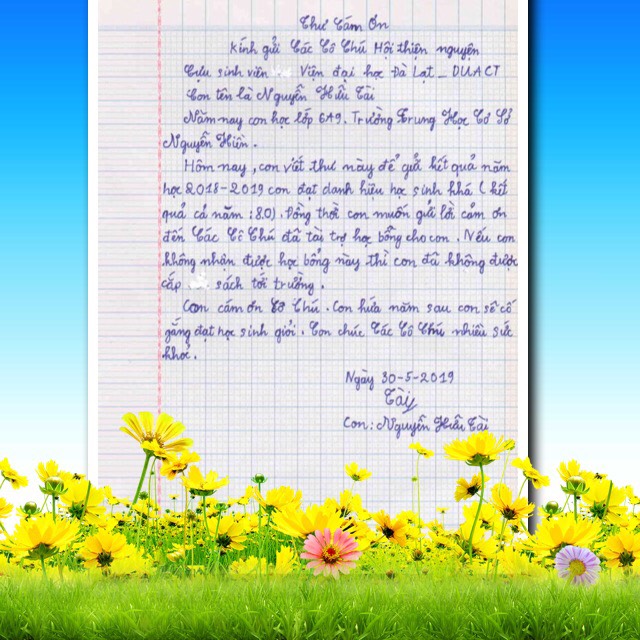 Thư Cám Ơn
Kính gửi Các Cô Chú Hội thiện nguyện
Cựu sinh viên Viện đại học Đà Lạt _ DUACT
Con tên là Nguyễn Hữu Tài
Năm nay con học lớp 6A9. Trường Trung Học Cơ Sở
Nguyễn Hiền.
Hôm nay, con viết thư này để gửi kết quả năm
học 2018-2019 con đạt danh hiệu học sinh khá ( kết
quả cả năm : 8.0). Đồng thời con muốn gửi lời cảm ơn
đến Các Cô Chú đã tài trợ học bổng cho con. Nếu con
không nhân được học bổng này thì con đã không được
cấp sách tới trường.
Con cám ơn Cô Chú. Con hứa năm sau con sẽ cố
gắng đạt học sinh giỏi. Con chúc Các Cô Chú nhiều sức
khoẻ.
Ngày 30-5-2019
Tài
Con: Nguyễn Hữu Tài